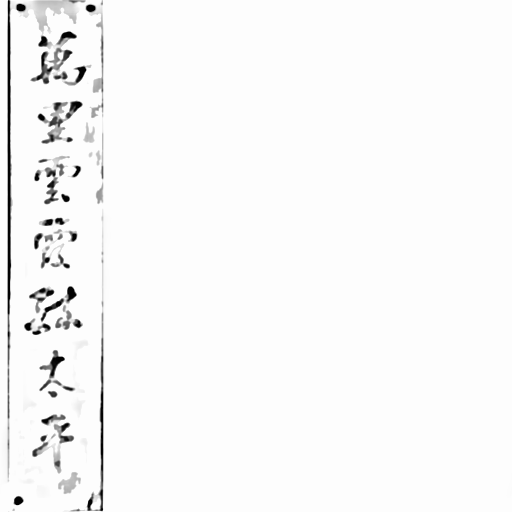 萬里雲霞繇太平